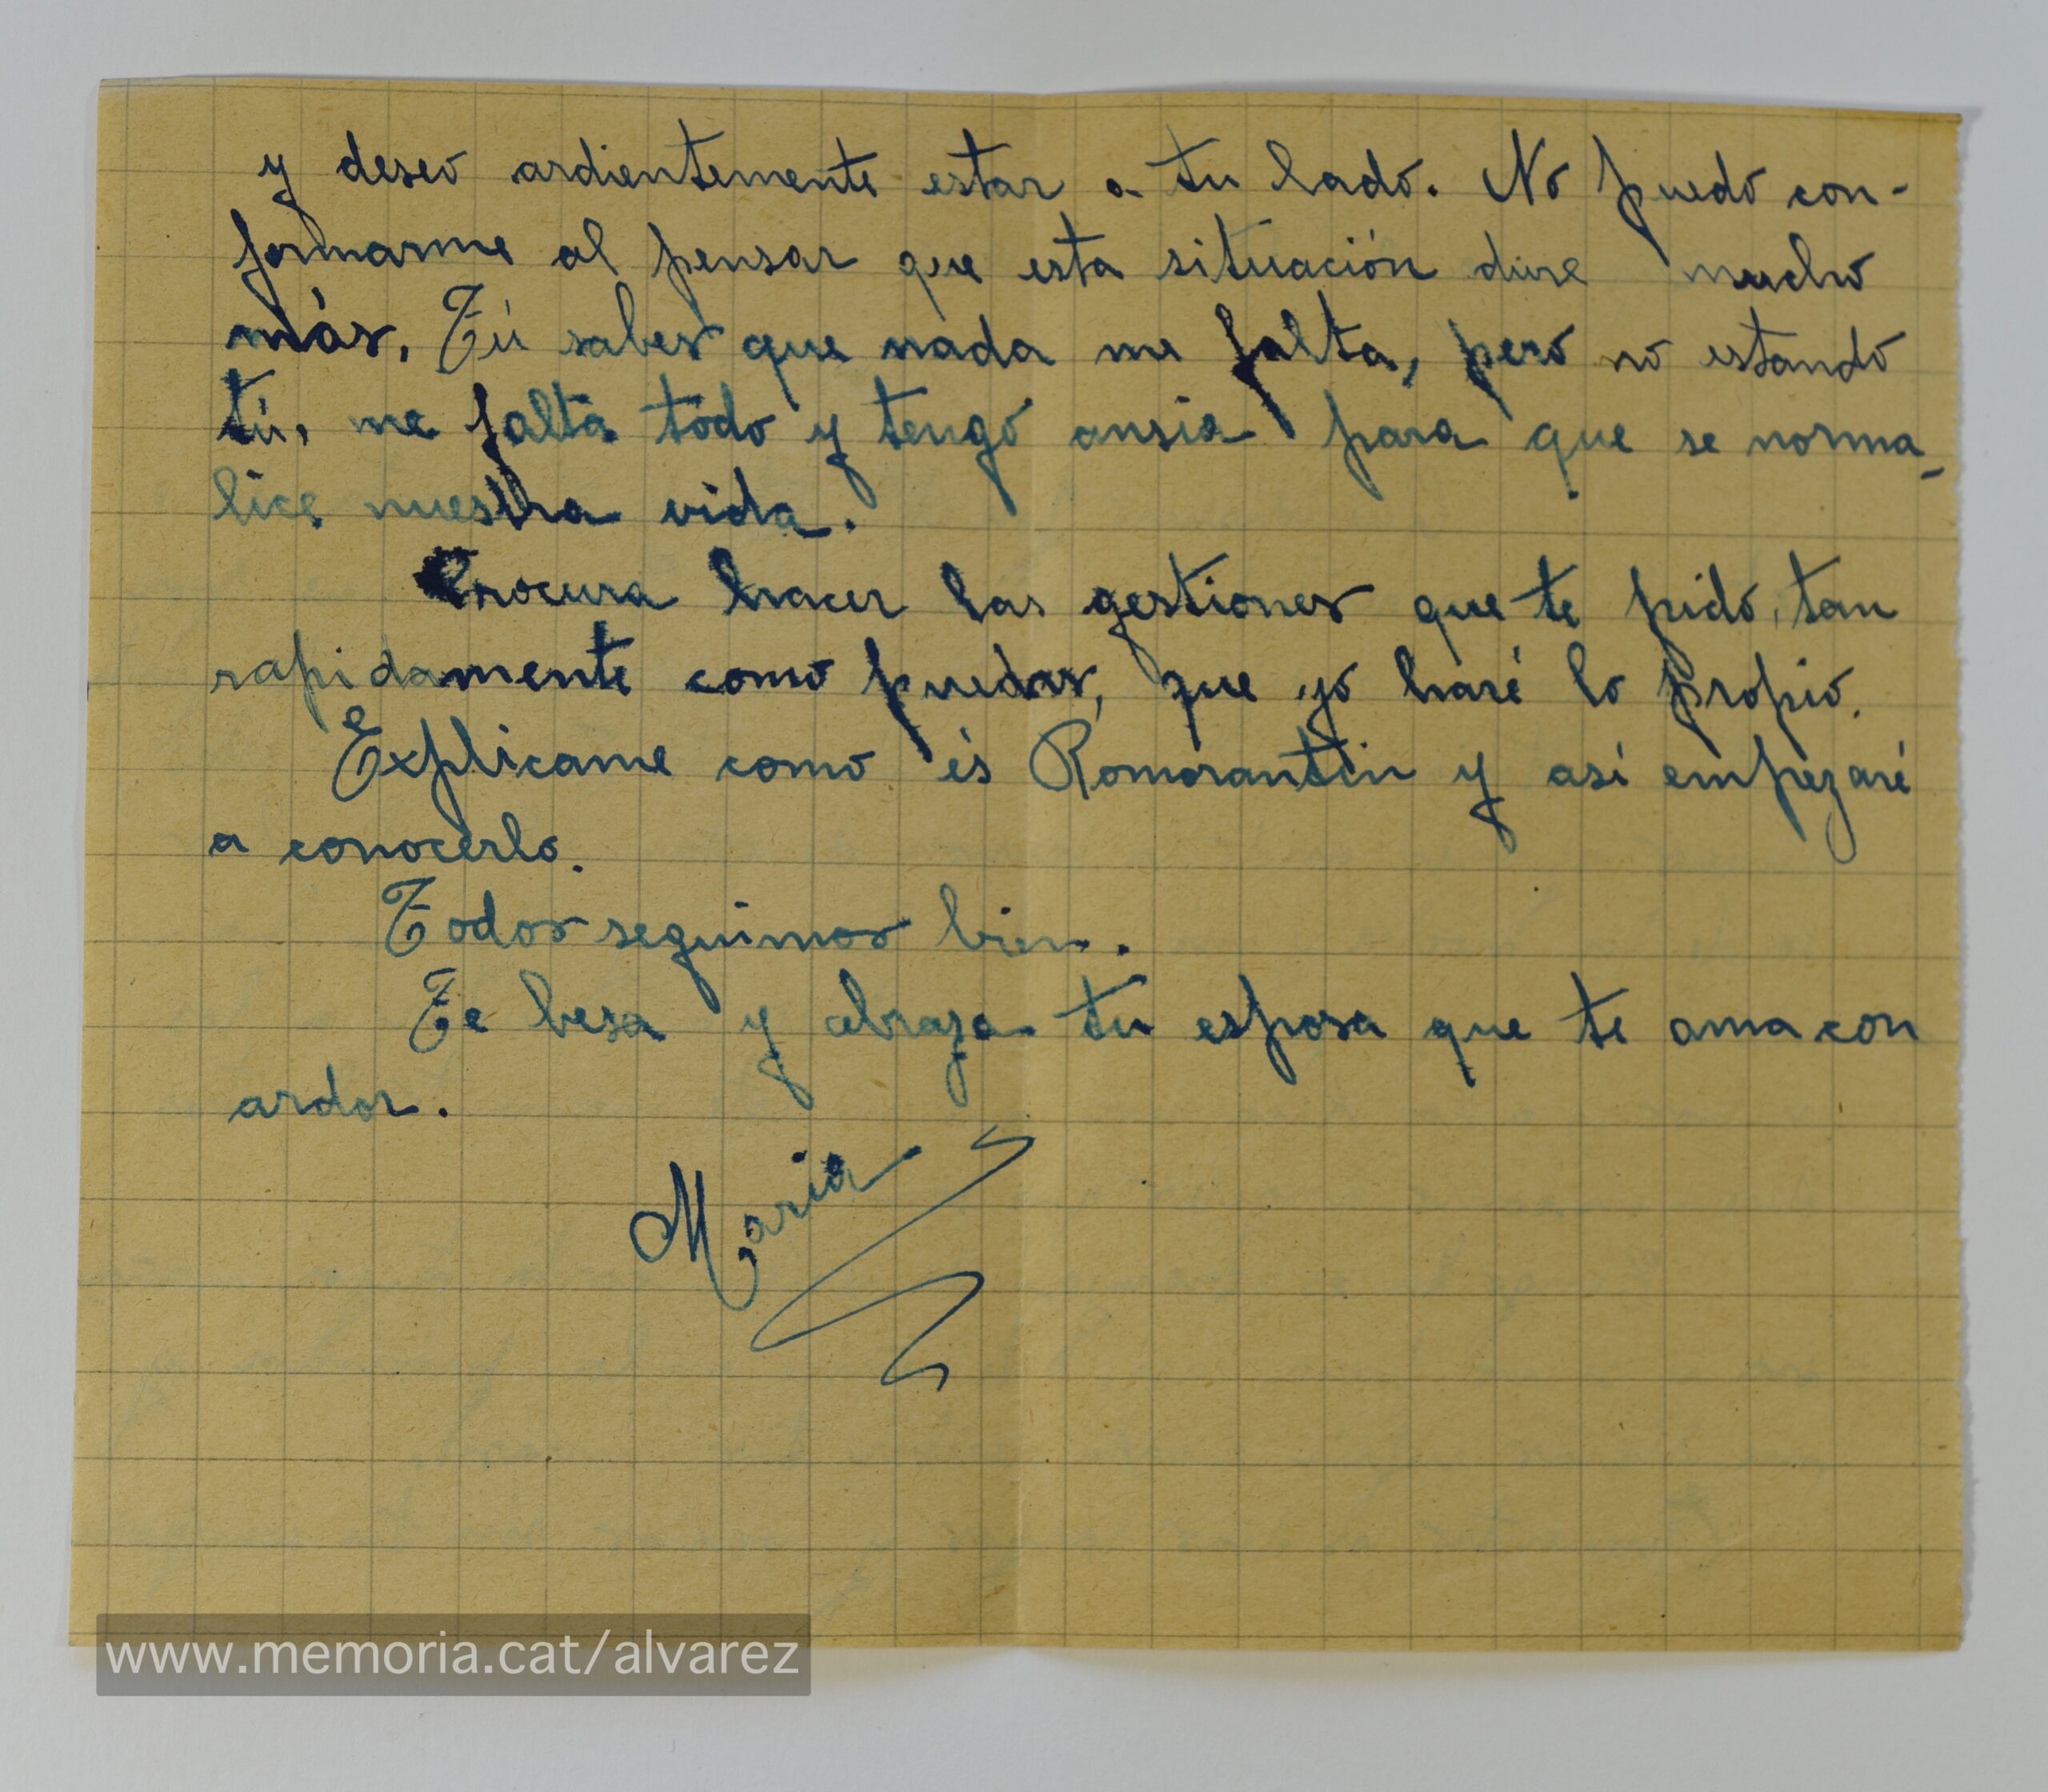 y deseo ardientemente estar a tu lado. No puedo con-
formarme al pensar que esta situación dure mucho
más. Tú sabes que nada me falta, pero no estando
tú, me falta todo y tengo ansia para que se norma-
lice nuestra vida.
Procura hacer las gestiones que te pido, tan
rapidamente como puedas, que yo haré lo propio.
Explicame como és Romorantin y así empezaré
a conocerlo.
Todos seguimos bien.
Te besa y abraza tu esposa que te ama con
ardor.
Maria
www.memoria.cat/alvarez